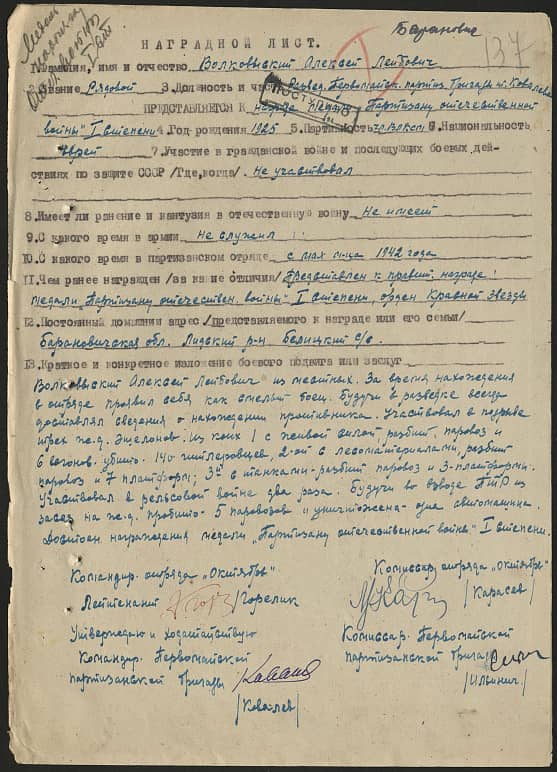 Медаль
Партизану
Отечеств.
I ст
Баранович
137
НАГРАДНОЙ ЛИСТ.
1. Фамилия, имя и отчество Волковыский Алексей Лейбович
Звание Рядовой 3. Должность и часть Развед. Первомайск. партиз. Бригады т. Ковалева
ПРЕДСТАВЛЯЕТСЯ К награде медали "Партизану отечественной
войны" I степени 4. Год рождения 1925 5. Партийность чл ВЛКСМ 6. Национальность
еврей 7. Участие в гражданской войне и последующих боевых дей-
ствиях по защите СССР /Где, когда/. не участвовал
8. Имеет ли ранение и кантузия в отечественную войну Не имеет
9. С какого время в армии не служил
10. С какого время в партизанском отряде с мая м-ца 1942 года
11. Чем ранее награжден /за какие отличия/ Представлен к правит. награде:
медали "Партизану отечествен. войны" I степени, орден Красной Звезды
12. Постоянный домашний адрес /Представляемого к награде или его семьи/
Барановичская обл. Лидский р-н Белицкий с/с.
13. Краткое и конкретное изложение боевого подвига или заслуг
Волковыский Алексей Лейбович из местных. За время нахождения
в отряде проявил себя как смелый боец. Будучи в разведке всегда
доставлял сведения о нахождении противника. Участвовал в подрыве
трех ж.д. эшелонов. Из коих 1 с живой силой, разбит, паровоз и
6 вагонов. убить. 140 гитлеровцев, 2-ой с лесоматериалами, разбит
паровоз и 7 платформ; 3й с танками-разбит паровоз и 3-платформы.
Участвовал в рельсовой войне два раза. Будучи во взводе ПТР из
засад на ж.д. пробито 5 паровозов и уничтожена одна автомашина.
Достоин награждения медали "Партизану отечественной войны" I степени.
Командир отряда "Октябрь" Комиссар отряда "Октябрь"
Лейтенант /Горелик /Карасев/
Утверждаю и ходатайствую Комиссар Первомайской
Командир Первомайской партизанской Бригады
партизанской Бригады /Ильинич./
/Ковалев/